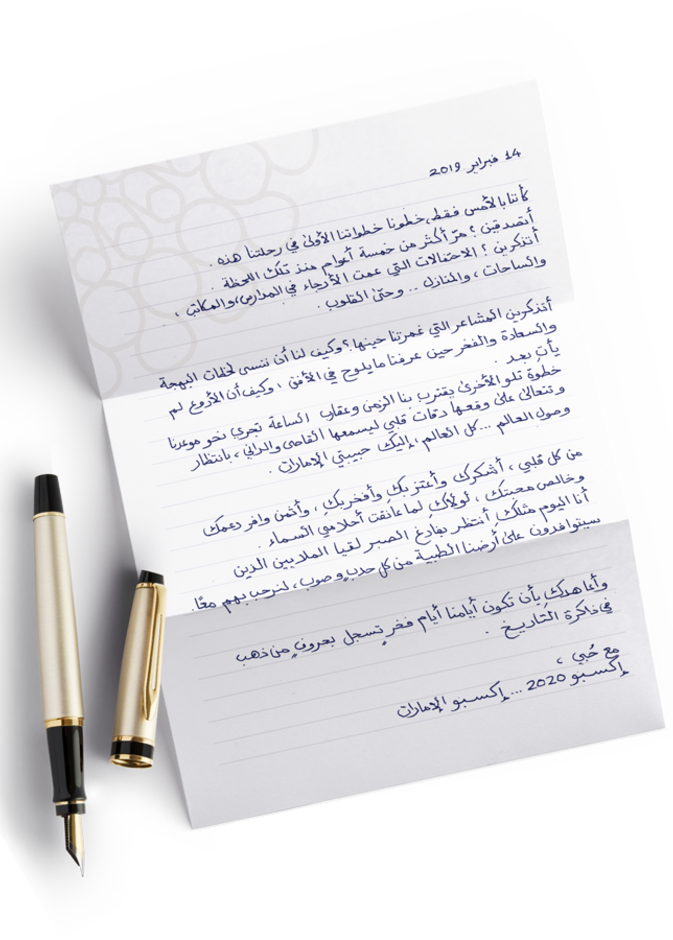 14 فبراير 2019
كأننا بالأمس فقط، خطونا خطواتنا الأولى في رحلتنا هذه .
أتصدقين ؟ مرّ أكثر من خمسة أعوام منذ تلك اللحظة .
أتذكرين ؟ الاحتفالات التي عمت الأرجاء في المدارس، والمكاتب ،
والساحات ، والمنازل .. وحتى القلوب .
أتذكرين المشاعر التي غمرتنا حينها ؟ وكيف لنا أن ننسى لحظات البهجة
والسعادة والفخر حين عرفنا ما يلوح في الأفق ، وكيف أن الأروع لم
يأتِ بعد .
خطوة تلو الأخرى يقترب بنا الزمن وعقارب الساعة تجري نحو موعدنا
وتتعالى على وقعها دقات قلبي ليسمعها القاصي والداني ، بانتظار
وصول العالم ... كل العالم ، إليك حبيبتي الإمارات .
من كل قلبي ، أشكركِ وأعتز بكِ وأفخر بكِ ، وأثمن وافر دعمك
وخالص محبتك ، لولاكِ لما عانقت أحلامي السماء .
أنا اليوم مثلكِ أنتظر بفارغ الصبر لقيا الملايين الذين
سيتوافدون على أرضنا الطيبة من كل حدبٍ وصوب ، لنرحب بهم معًا.
وأعاهدكِ بأن تكون أيامنا أيام فخرٍ تسجل بحروفٍ من ذهب
في ذاكرة التاريخ .
مع حُبي ،
إكسبو 2020 ... إكسبو الإمارات